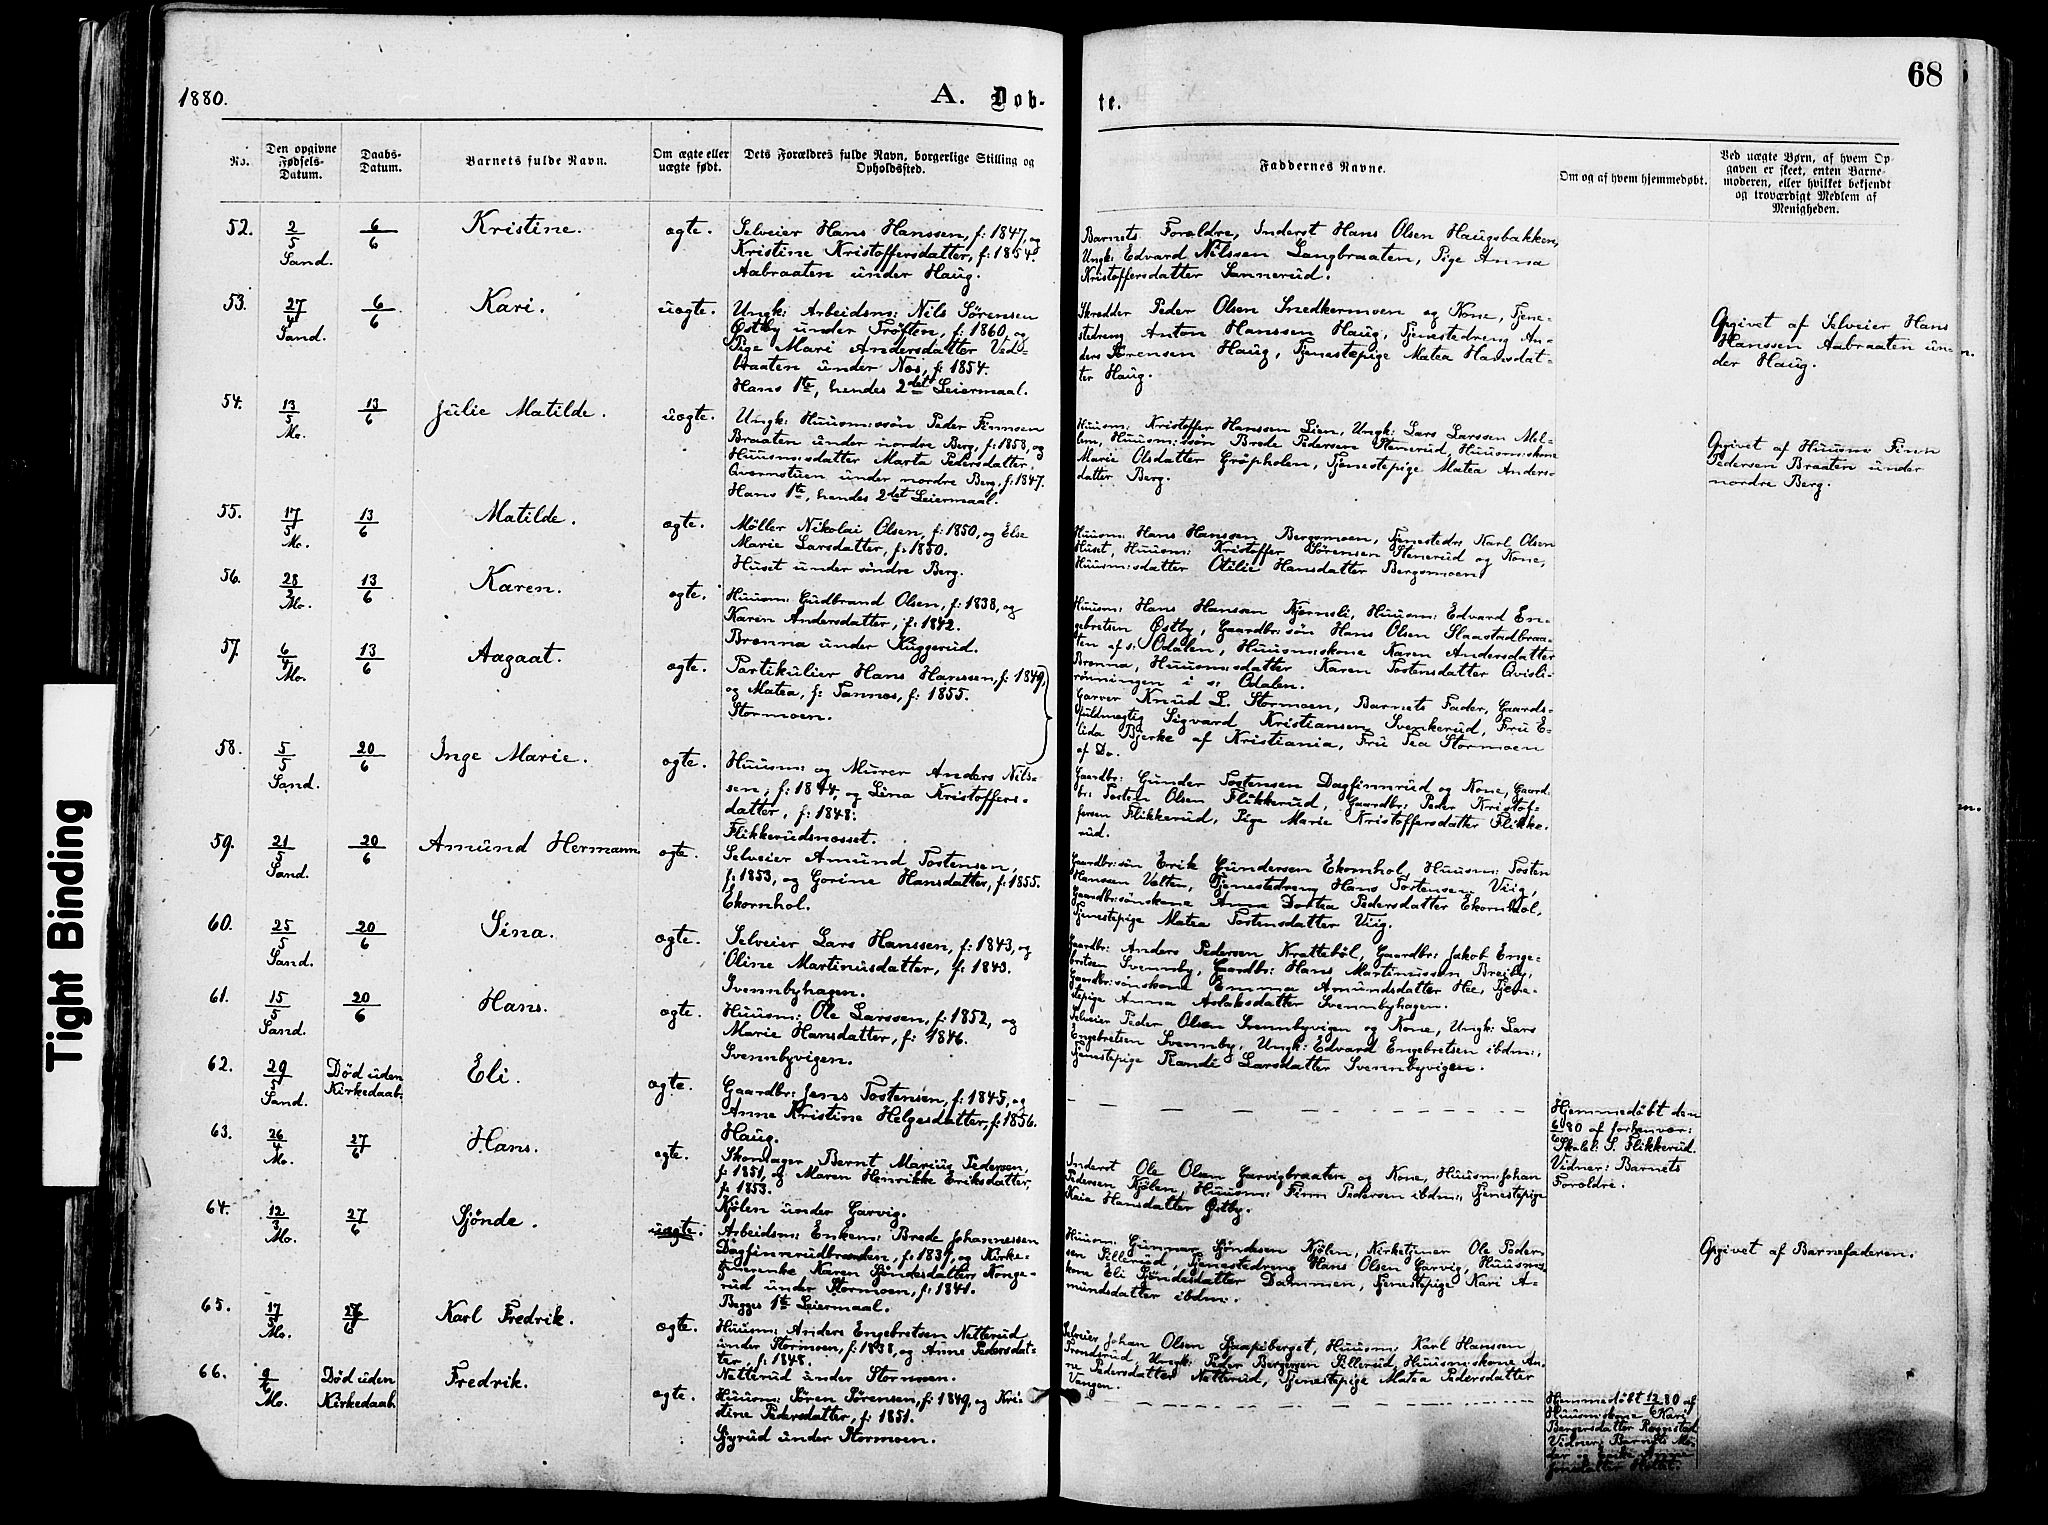 68
1880.
A. Døb-
te.
No.
Den opgivne
Fødsels-
Datum.
Daabs-
Datum.
Barnets fulde Navn.
Om ægte eller
uægte født.
Dets Forældres fulde Navn, borgerlige Stilling og
Opholdssted.
Faddernes Navne.
Om og af hvem hjemmedøbt.
Ved uægte Børn, af hvem Op-
gaven er skeet, enten Barne-
moderen, eller hvilket bekjendt
og troværdigt Medlem af
Menigheden.
52.
2/5
Sand.
6/6
Kristine.
ægte.
Selveier Hans Hanssen, f: 1847, og
Kristine Kristoffersdatter, f: 1854.
Aabraaten under Haug.
Barnets Forældre, Inderst Hans Olsen Haugsbakken,
Ungk: Edvard Nilssen Langbraaten, Pige Anna
Kristoffersdatter Sannerud.
53.
27/4
Sand.
6/6
Kari.
uægte.
Ungk: Arbeidsm: Nils Sørensen
Østby under Trøften, f: 1860, og
Pige Mari Andersdatter Ved-
braaten under Næs, f: 1854.
Hans 1te, hendes 2det Leiermaal.
Skrædder Peder Olsen Snedkermoen og Kone, Tjene-
stedreng Anton Hanssen Haug, Tjenestedreng An-
ders Sørensen Haug, Tjenestepige Matea Hansdat-
ter Haug.
Opgivet af Selveier Hans
Hanssen Aabraaten un-
der Haug.
54.
13/5
Mo.
13/6
Julie Matilde.
uægte.
Ungk: Huusm:ssøn Peder Finnsen
Braaten under nordre Berg, f: 1858, og
Huusm:sdatter Marta Pedersdatter
Qvernstuen under nordre Berg, f: 1847.
Hans 1te, hendes 2det Leiermaal.
Huusm: Kristoffer Hanssen Lien, Ungk: Lars Larssen Mel-
lem, Huusm:ssøn Brede Pedersen Stenerud, Huusm:skone
Marie Olsdatter Grøpholen, Tjenestepige Matea Anders-
datter Berg.
Opgivet af Huusm: Finn
Pedersen Braaten under
nordre Berg.
55.
17/5
Mo.
13/6
Matilde.
ægte.
Møller Nikolai Olsen, f: 1850, og Else
Marie Larsdatter, f: 1850.
Huset under søndre Berg.
Huusm: Hans Hanssen Bergsmoen, Tjenestedr: Karl Olsen
Huset, Huusm: Kristoffer Sørensen Stenerud og Kone,
Huusm:sdatter Otilie Hansdatter Bergsmoen.
56.
28/2
Mo.
13/6
Karen.
ægte.
Huusm: Gudbrand Olsen, f: 1838, og
Karen Andersdatter, f: 1842.
Brenna under Kuggerud.
Huusm: Hans Hanssen Kjernsli, Huusm: Edvard En-
gebretsen Østby, Gaardbr:søn Hans Olsen Slaastadbraa-
ten af s: Odalen, Huusm:skone Karen Andersdatter
Brenna, Huusm:sdatter Karen Tostensdatter Qvisli-
rønningen i s: Odalen.
57.
6/4
Mo.
13/6
Aagaat.
ægte.
Partikulier Hans Hanssen, f: 1849,
og Matea, f: Tannæs, f: 1855.
Stormoen.
Garver Knud L. Stormoen, Barnets Fader, Gaards-
fuldmægtig Sigvard Kristiansen Svenkerud, Fru E-
lida Bjerke af Kristiania, Fru Tea Stormoen
af Do.
58.
5/5
Sand.
20/6
Inge Marie.
ægte.
Huusm: og Murer Anders Nils-
sen, f: 1844 og Lina Kristoffers-
datter, f: 1848.
Flikkerudsmosset.
Gaardbr: Gunder Tostensen Dagfinnrud og Kone, Gaard-
br: Tosten Olsen Flikkerud, Gaardbr: Peder Kristof-
fersen Flikkerud, Pige Marie Kristoffersdatter Flikke-
rud.
59.
21/5
Sand.
20/6
Amund Hermann
ægte.
Selveier Amund Tostensen,
f: 1853, og Gorine Hansdatter, f: 1855.
Ekornhol.
Gaardbr:søn Erik Gundersen Ekornhol, Huusm: Tosten
Hanssen Valten, Tjenestedreng Hans Tostensen Viig,
Gaardbr:sønskone Anne Dortea Pedersdatter Ekornhol,
Tjenestepige Matea Tostensdatter Viig.
60.
25/5
Sand.
20/6
Sina.
ægte.
Selveier Lars Hanssen, f: 1843, og
Oline Martinusdatter, f: 1843.
Svennbyhagen.
Gaardbr: Anders Pedersen Krattebøl, Gaardbr: Jakob Enge-
bretsen Svennby, Gaardbr: Hans Martinussen Breiby,
Gaardbr:sønskone Emma Amundsdatter Hee, Tjene-
stepige Anna Aslaksdatter Svennbyhagen.
61.
15/5
Sand.
20/6
Hans.
ægte.
Huusm: Ole Larssen, f: 1852, og
Marie Hansdatter, f: 1846.
Svennbyvigen.
Selveier Peder Olsen Svennbyvigen og Kone, Ungk: Lars
Engebretsen Svennby, Ungk: Edvard Engebretsen ibdm:,
Tjenestepige Randi Larsdatter Svennbyvigen.
62.
29/5
Sand.
Død uden
Kirkedaab.
Eli.
ægte.
Gaardbr: Jens Tostensen, f: 1845, og
Anne Kristine Helgesdatter, f: 1856.
Haug.
Hjemmedøbt den
6/6 80 af forhenvær:
Skolel: S. Flikkerud.
Vidner: Barnets
Forældre.
63.
26/4
Mo.
27/6
Hans.
ægte.
Skomager Bernt Marius Pedersen,
f: 1851, og Maren Henrikke Eriksdatter,
f: 1853.
Kjølen under Garvig.
Inderst Ole Olsen Garvigbraaten og Kone, Huusm: Johan
Pedersen Kjølen, Huusm: Finn Pedersen ibdm:, Tjenestepige
Kaia Hansdatter Østby.
64.
12/3
Mo.
27/6
Sjønde.
uægte.
Arbeidsm: Enkem: Brede Johannessen
Dagfinrudbraaden, f: 1837, og Kirke-
tjenerenke Karen Sjøndesdatter Konge-
rud under Stormoen, f: 1841.
Begges 1te Leiermaal.
Huusm: Gunnar Sjøndesen Kjølen, Kirketjener Ole Peder-
sen Sillerud, Tjenestedreng Hans Olsen Garvig, Huusm:s-
kone Eli Sjøndesdatter Dammen, Tjenestepige Kari A-
mundsdatter ibdm:.
Opgivet af Barnefaderen.
65.
17/5
Mo.
27/6
Karl Fredrik.
ægte.
Huusm: Anders Engebretsen Netterud
under Stormoen, f: 1838, og Anne Pedersdat-
ter, f: 1848.
Netterud under Stormoen.
Selveier Johan Olsen Skaapiberget, Huusm: Karl Hanssen
Tronderud, Ungk: Peder Bergersen Sillerud, Huusm:skone An-
ne Pedersdatter Netterud, Tjenestepige Matea Pedersdatter
Vangen.
66.
9/6
Mo.
Død uden
Kirkedaab.
Fredrik.
ægte.
Huusm: Søren Sørensen, f: 1849, og Kri-
stine Pedersdatter, f: 1851.
Gyrud under Stormoen.
Hjemmedøbt 12/6 80 af
Huusm:skone Kari
Bergersdatter Roggestad.
Vidner: Barnets Mo-
der og
Tight Binding